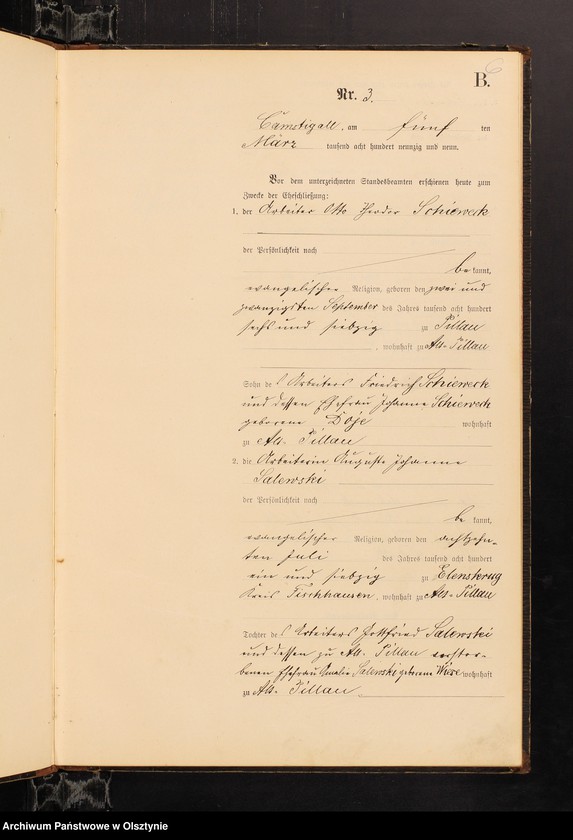 B.
6
Nr. 3.
Camstigall, am fünf ten
März tausend acht hundert neunzig und neun.
Vor dem unterzeichneten Standesbeamten erschienen heute zum
Zwecke der Eheschließung:
1. der Arbeiter Otto Schieweck
der Persönlichkeit nach
be kannt,
evangelischer Religion, geboren den zwei und
zwanzigsten September des Jahres tausend acht hundert
sechs und siebzig zu Pillau
, wohnhaft zu Alt-Pillau
Sohn des Arbeiters Friedrich Schieweck
und dessen Ehefrau Johanne Schieweck
geborene Doje wohnhaft
zu Alt-Pillau
2. die Arbeiterin Auguste Johanne
Salewski
der Persönlichkeit nach
be kannt,
evangelischer Religion, geboren den achtzehn-
ten Juli des Jahres tausend acht hundert
ein und siebzig zu Elenskrug
Kreis Fischhausen, wohnhaft zu Alt-Pillau
Tochter des Arbeiters Gottfried Salewski
und dessen zu Alt-Pillau verstor-
benen Ehefrau Amalie Salewski geborene Wiese wohnhaft
zu Alt-Pillau
Archiwum Państwowe w Olsztynie